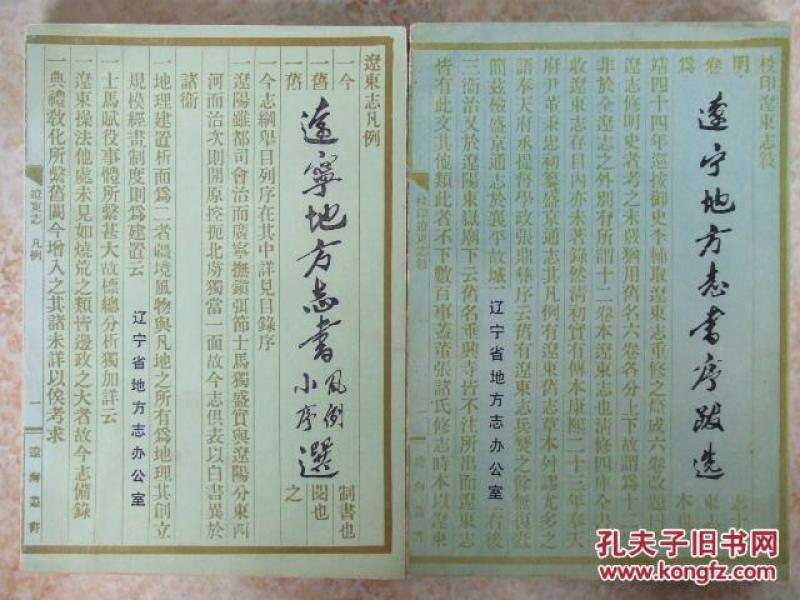 遼東志凡例
一今 制書也
一舊 閱也
一舊 之
遼寧地方志書凡例小序選
一今志綱舉目列序在其中詳見目錄序
一遼陽雖都司會治而廣寧撫鎮弭節士馬獨盛實與遼陽分東西
河而治次則開原控扼北虜獨當一面故今志俱表以白書異於
諸衛
一地理建置析而爲二者疆境風物與凡地之所有爲地理其創立
規模經畫制度則爲建置云
辽宁省地方志办公室
一士馬賦役事體所繫甚大故標總分析獨加詳云
一遼東操法他處未見如燒荒之類皆邊政之大者故今志備錄
一典禮教化所繫舊闕今增入之其諸未詳以俟考求
遼東志 凡例
一
遼海叢書
校印遼東志
明 志
卷 東
爲 本
辽宁地方志书序跋选
靖四十四年巡按御史李輔取遼東志重修之釐成六卷改題
遼志修明史者考之未嚴猶用舊名六卷各分上下故謂爲十
非於全遼志之外別有所謂十二卷本遼東志也清修四庫全
收遼東志存目內亦未著錄然清初實有傳本康熙二十二年奉天
府尹董秉忠初纂盛京通志其凡例有遼東舊志草本舛謬尤多之
語奉天府丞提督學政張鼎彝序云舊有遼東志兵燹之餘無復
簡茲檢盛京通志於襄平故城 右後
辽宁省地方志办公室
三衛治又於遼陽東嶽廟下云舊名垂興寺皆不注所出而遼東志
皆有此文其他類此者不下數百事蓋董張諸氏修志時本以遼東
校印遼東志
孔夫子旧书网
www.kongfz.com